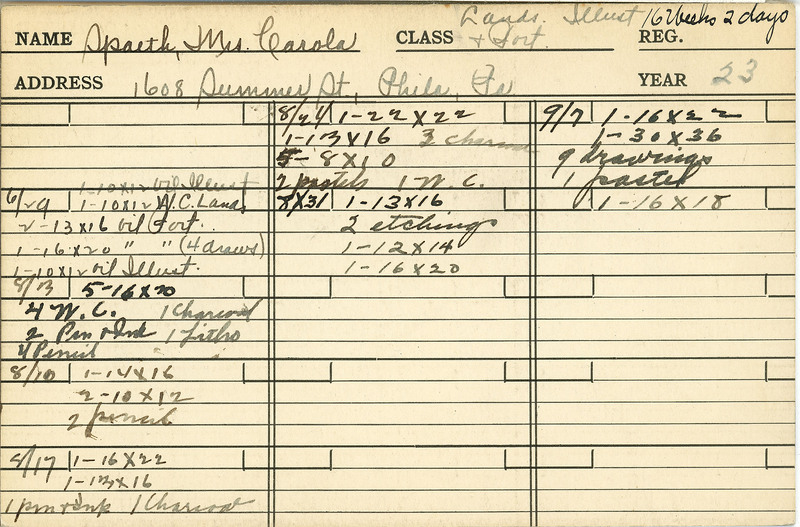 NAME Spaeth, Mrs. Carola CLASS Lands. Illust + Port. REG. 16 Weeks 2 days
ADDRESS 1608 Summer St., Phila, Pa YEAR 23
1-10x12 oil Illust
6/29 1-10x12 W.C. Lands
2-13x16 oil Port.
1-16x20 " " (4 draws)
1-10x12 oil Illust.
8/3 5-16x20
4 W.C. 1 Charcoal
2 Pen & Ink 1 Litho
4 Pencil
8/10 1-14x16
2-10x12
2 pencil
8/17 1-16x22
1-13x16
1 pen & Ink 1 Charcoal
8/24 1-22x22
1-13x16 3 charcoal
5-8x10
2 pastels 1 W.C.
8/31 1-13x16
2 etchings
1-12x14
1-16x20
9/7 1-16x22
1-30x36
9 drawings
1 pastel
1-16x18